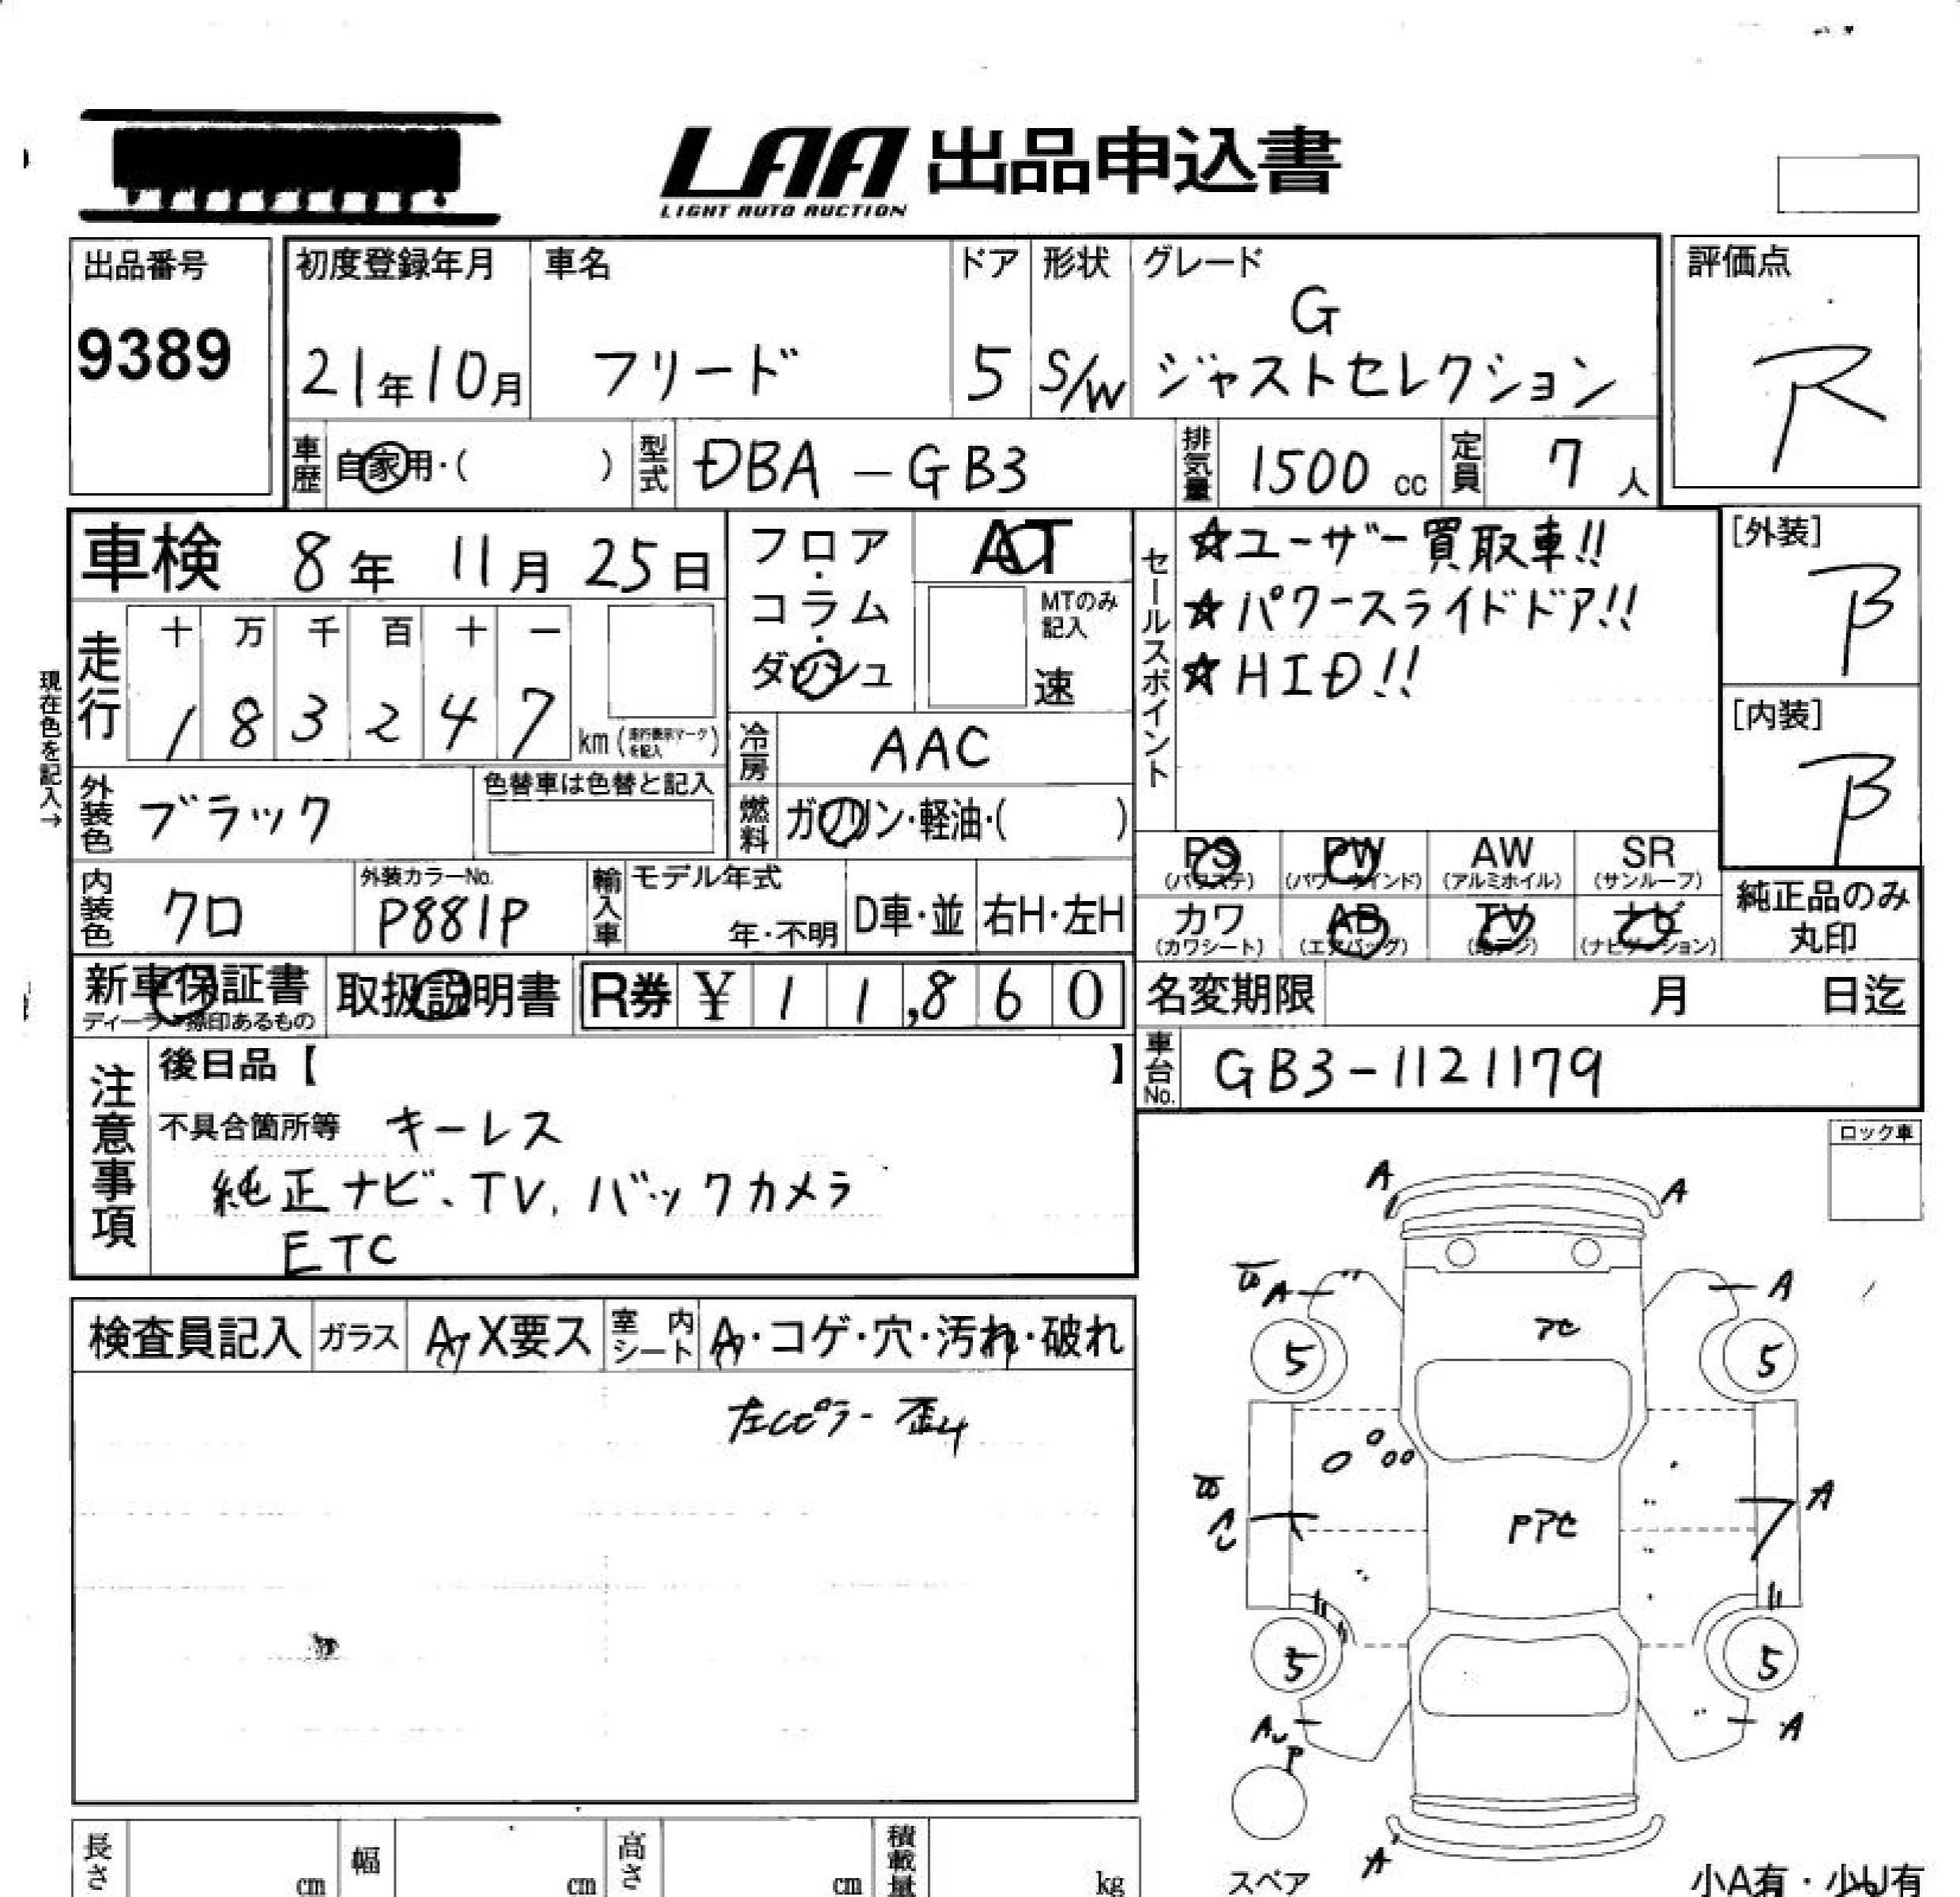 LAA 出品申込書
LIGHT AUTO AUCTION
出品番号
9389
初度登録年月
21年10月
車名
フリード
ドア
5
形状
S/W
グレード
G
ジャストセレクション
評価点
R
車歴 自家用・( )
型式 DBA-GB3
排気量 1500 cc
定員 7人
車検 8年 11月 25日
フロア・コラム・ダッシュ
AT
MTのみ記入
速
セールスポイント
☆ユーザー買取車!!
☆パワースライドドア!!
☆HID!!
[外装]
B
[内装]
B
現在色を記入→
走行
十 万 千 百 十 一
1 8 3 2 4 7 km (走行表示マークを記入)
冷房 AAC
外装色 ブラック
色替車は色替と記入
燃料 ガソリン・軽油・( )
PS (パワステ)
PW (パワーウインド)
AW (アルミホイル)
SR (サンルーフ)
カワ (カワシート)
AB (エアバッグ)
TV (地デジ)
ナビ (ナビゲーション)
純正品のみ丸印
内装色 クロ
外装カラーNo.
P881P
輸入車
モデル年式
年・不明
D車・並
右H・左H
新車保証書
取扱説明書
R券 ¥ 1 1,8 6 0
名変期限 月 日迄
車台No. GB3-1121179
注意事項
後日品【 】
不具合箇所等 キーレス
純正ナビ、TV、バックカメラ
ETC
ロック車
検査員記入
ガラス
A・X要ス
室内シート
A・コゲ・穴・汚れ・破れ
左Cピラー歪み
A
A
A
A
アセ
5
5
A
Pアセ
5
5
A
P
A
A
スペア
長さ cm
幅 cm
高さ cm
積載量 kg
小A有・少U有